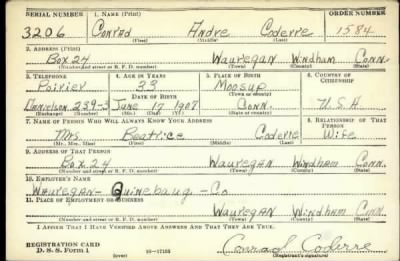 SERIAL NUMBER 1. NAME (Print) ORDER NUMBER
3206 Conrad Andre Coderre 1584
(First) (Middle) (Last)
2. ADDRESS (Print)
Box 24 Wauregan Windham Conn.
(Number and street or R. F. D. number) (Town) (County) (State)
3. TELEPHONE 4. AGE IN YEARS 5. PLACE OF BIRTH 6. COUNTRY OF CITIZENSHIP
Poirier 33 Moosup
DATE OF BIRTH (Town or county)
Danielson 239-3 June 17 1907 Conn. U.S.A.
(Exchange) (Number) (Mo.) (Day) (Yr.) (State or country)
7. NAME OF PERSON WHO WILL ALWAYS KNOW YOUR ADDRESS 8. RELATIONSHIP OF THAT PERSON
Mrs. Beatrice Coderre Wife
(Mr., Mrs., Miss) (First) (Middle) (Last)
9. ADDRESS OF THAT PERSON
Box 24 Wauregan Windham Conn.
(Number and street or R. F. D. number) (Town) (County) (State)
10. EMPLOYER'S NAME
Wauregan - Quinebaug - Co
11. PLACE OF EMPLOYMENT OR BUSINESS
Wauregan Windham Conn.
(Number and street or R. F. D. number) (Town) (County) (State)
I AFFIRM THAT I HAVE VERIFIED ABOVE ANSWERS AND THAT THEY ARE TRUE.
REGISTRATION CARD
D. S. S. Form 1 16-17105 Conrad Coderre
(over) (Registrant's signature)